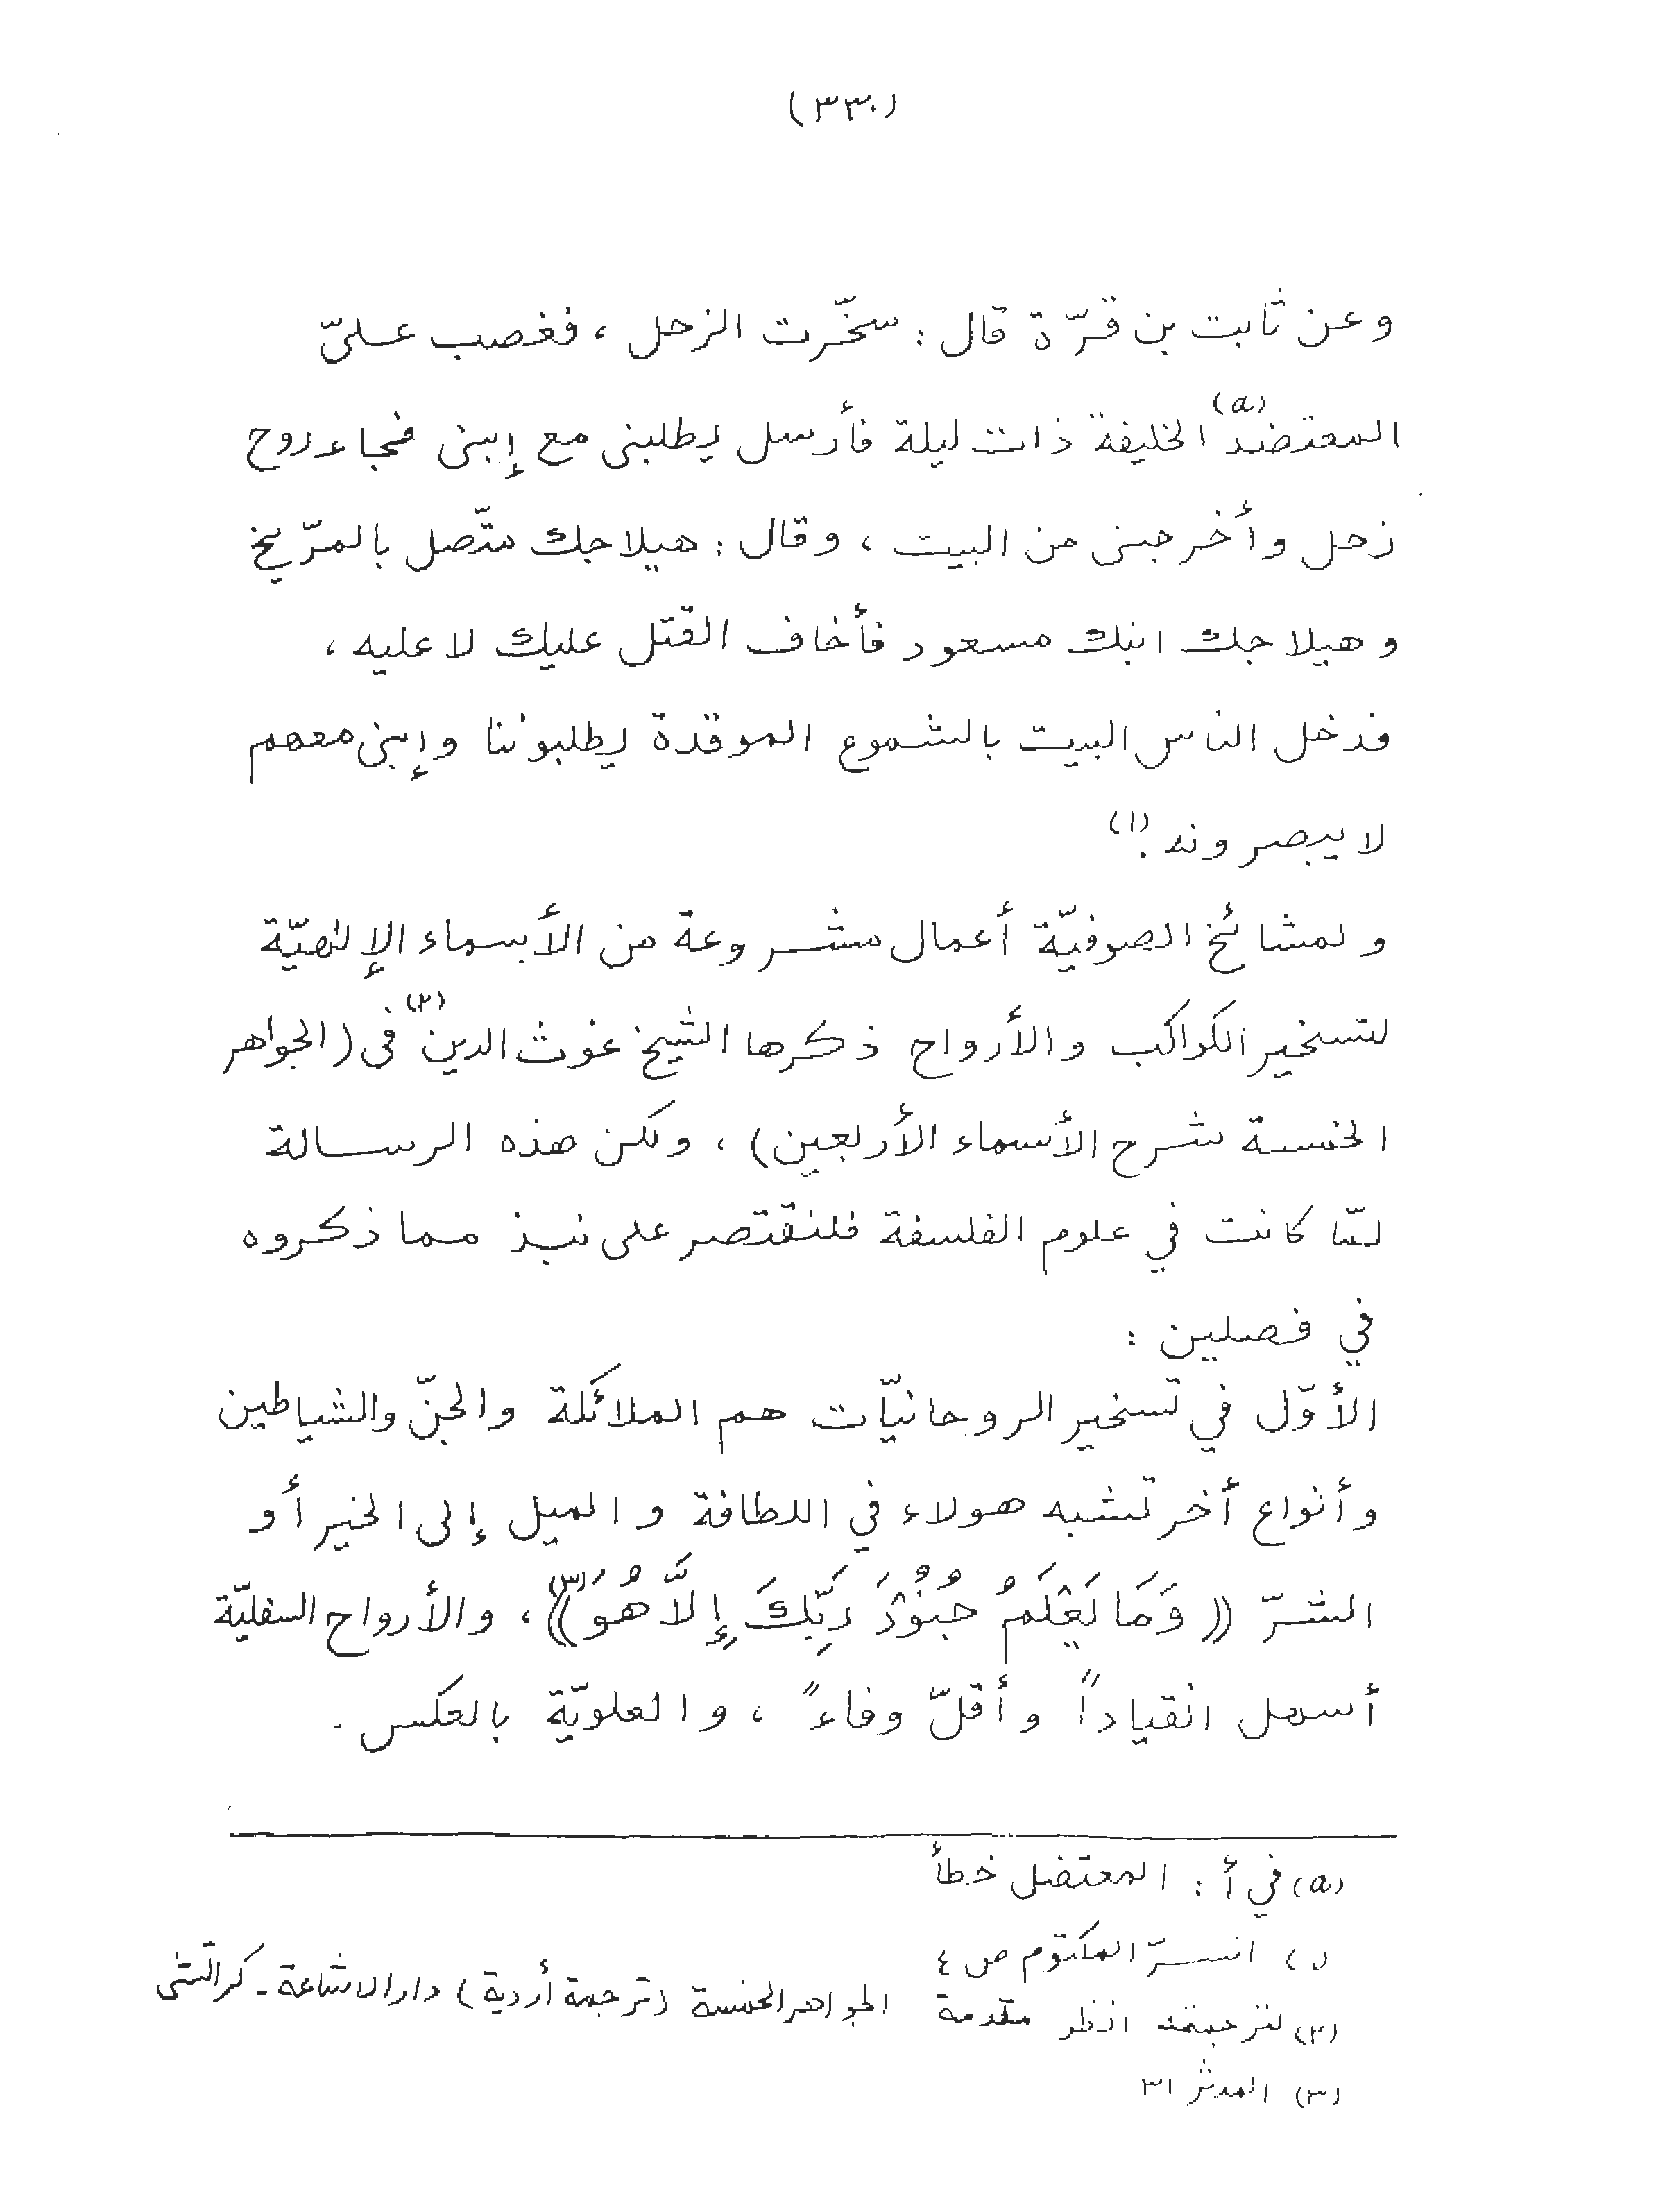 (٣٣٠)
وعن ثابت بن قرّة قال : سخّرت الزحل ، فغصب علىّ
المعتضد(a) الخليفة ذات ليلة فأرسل يطلبنى مع إبنى فجاء روح
زحل وأخرجنى من البيت ، وقال : هيلاجك متّصل بالمرّيخ
وهيلاجك ابنك مسعود فأخاف القتل عليك لا عليه ،
فدخل الناس البيت بالشموع الموقدة يطلبوننا وإبنى معهم
لا يبصرونه .(١)
ولمشائخ الصوفيّة أعمال مشروعة من الأسماء الإلٰهيّة
لتسخير الكواكب والأرواح ذكرها الشيخ غوث الدين(٢) فى (الجواهر
الخمسة شرح الأسماء الأربعين) ، ولكن هذه الرسالة
لمّا كانت في علوم الفلسفة فلنقتصر على نبذ مما ذكروه
في فصلين :
الأوّل في تسخير الروحانيّات هم الملائكة والجنّ والشياطين
وأنواع أخر تشبه هولاء في اللطافة والميل إلى الخير أو
الشرّ ((وَمَا يَعْلَمُ جُنُوْدَ رَبِّكَ إِلَّا هُوَ))(٣) ، والأرواح السفليّة
أسهل انقياداً وأقلّ وفاءً ، والعلويّة بالعكس .
(a) في أ : المعتضل خطأ
(١) السرّ المكتوم ص ٤
(٢) لترجمته انظر مقدمة الجواهر الخمسة (ترجمة أردية) دار الاشاعة - كراتشى
(٣) المدثر ٣١